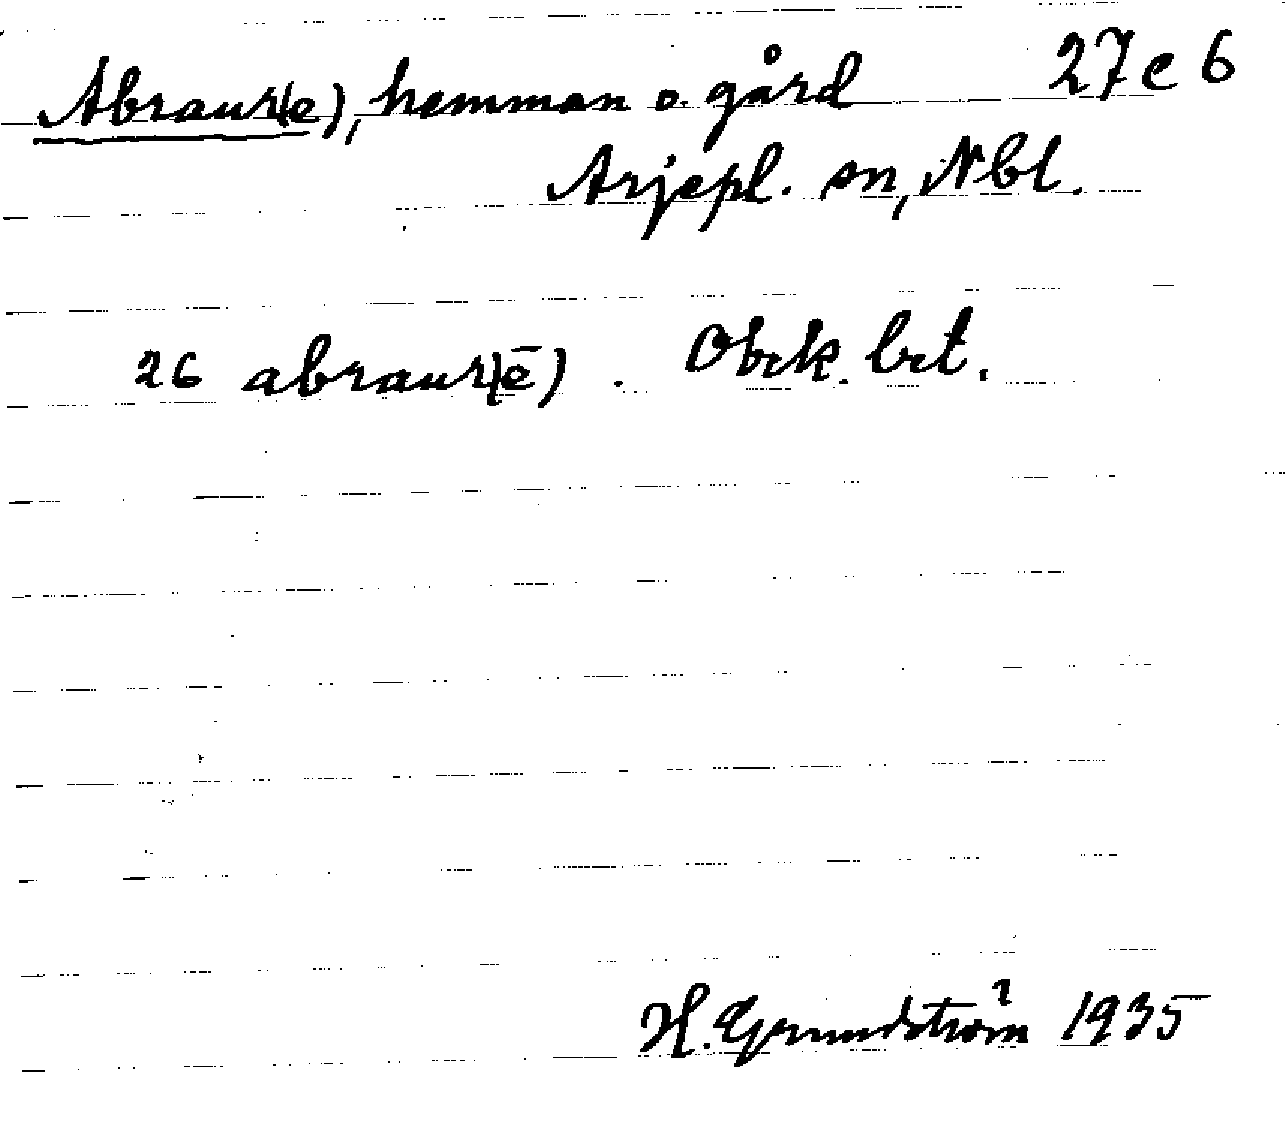 Abraur(e), hemman o. gård 27 c 6
Arjepl. sn, Nbt.
26 abraur(ē). Obrk. brt.
H. Grundström 1935